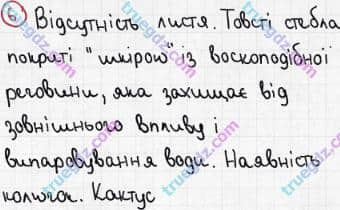 6 Відсутність листя. Товсті стебла
покриті "шкірою" із воскоподібної
речовини, яка захищає від
зовнішнього впливу і
випаровування води. Наявність
колючок. Кактус
truegdz.com
truegdz.com
truegdz.com
truegdz.com
truegdz.com
truegdz.com